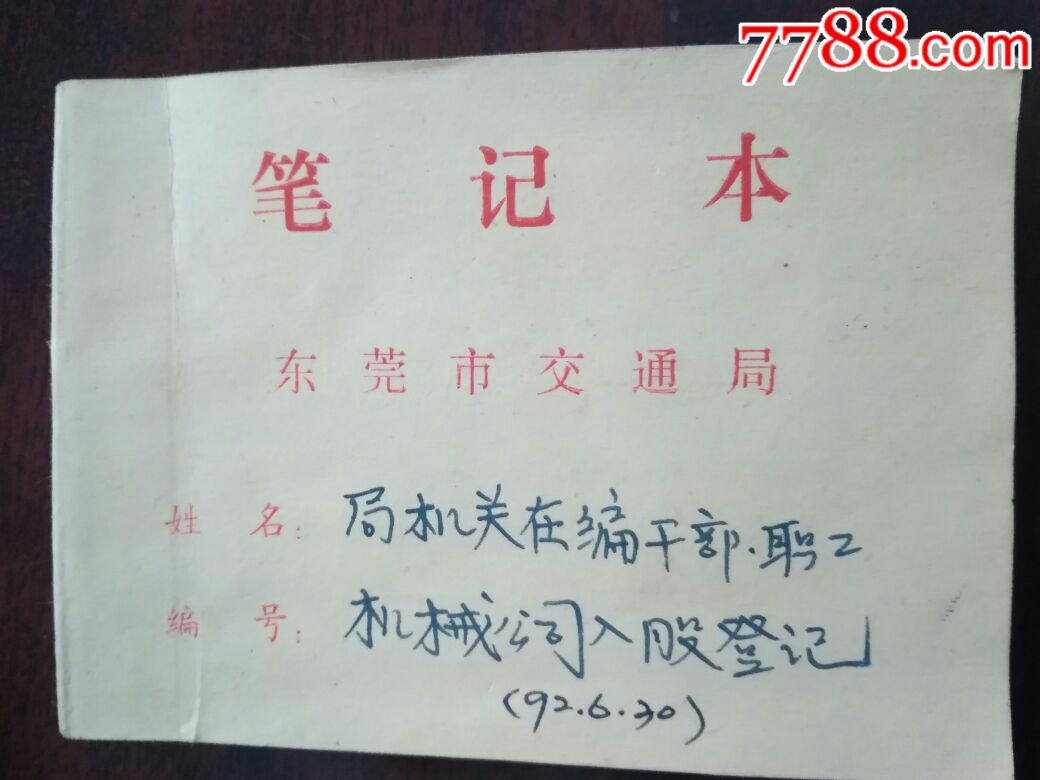 7788.com
笔记本
东莞市交通局
姓名：局机关在编干部、职工
编号：机械公司入股登记
(92.6.30)